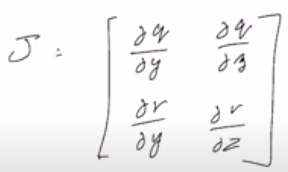 J = [ ∂q/∂y ∂q/∂z
∂r/∂y ∂r/∂z ]